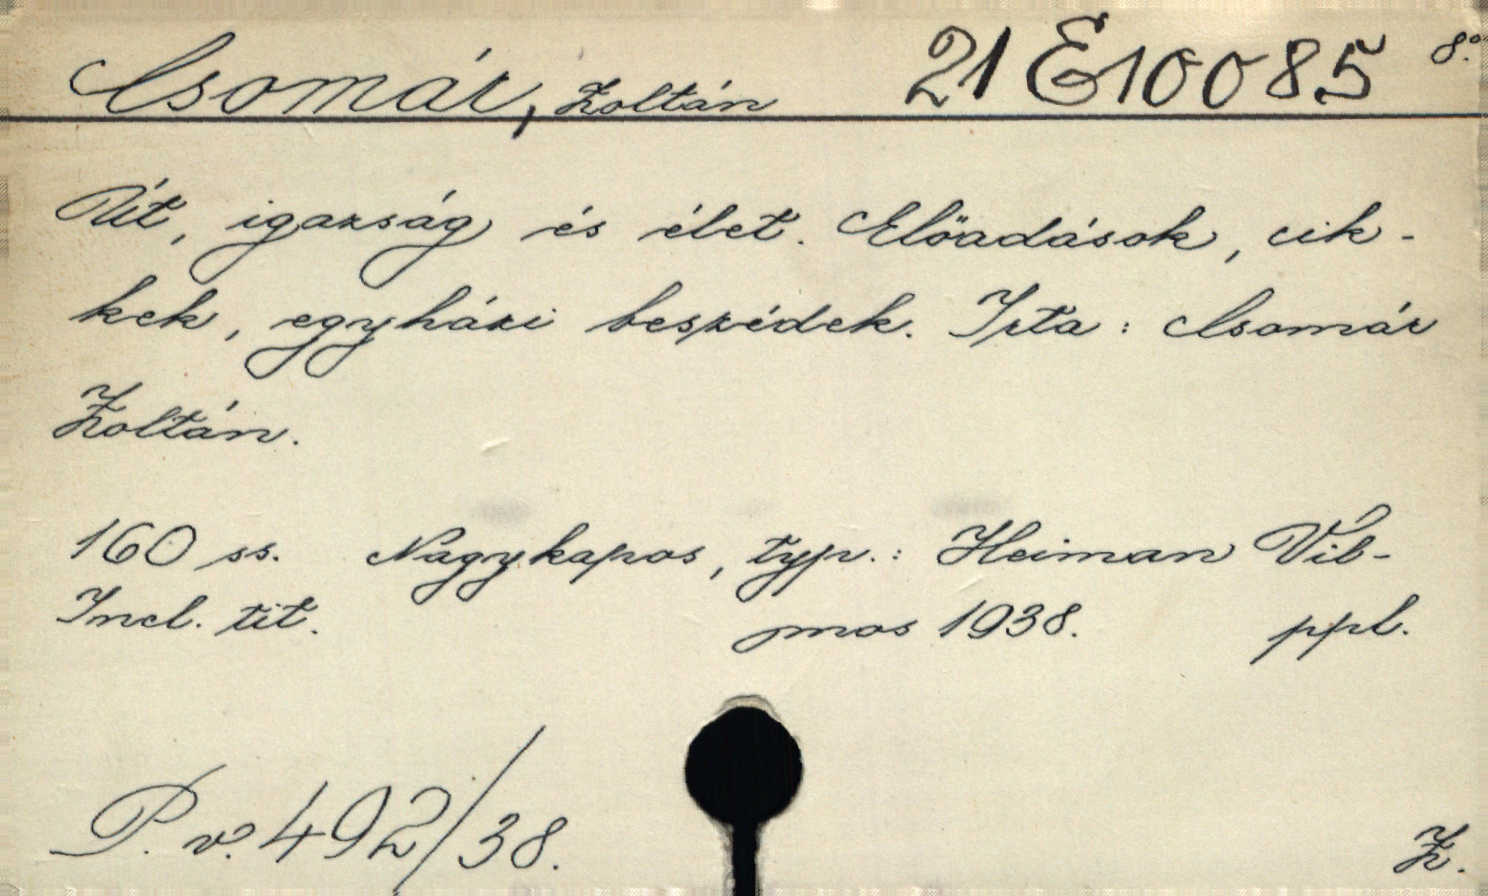 Csomár, Zoltán 21 E 10085 8°.
Út, igazság és élet. Előadások, cik-
kek, egyházi beszédek. Irta: Csomár
Zoltán.
160 ss. Nagykapos, typ.: Heiman Vil-
Incl. tit. mos 1938. ppl.
P. v. 492/38. Z.